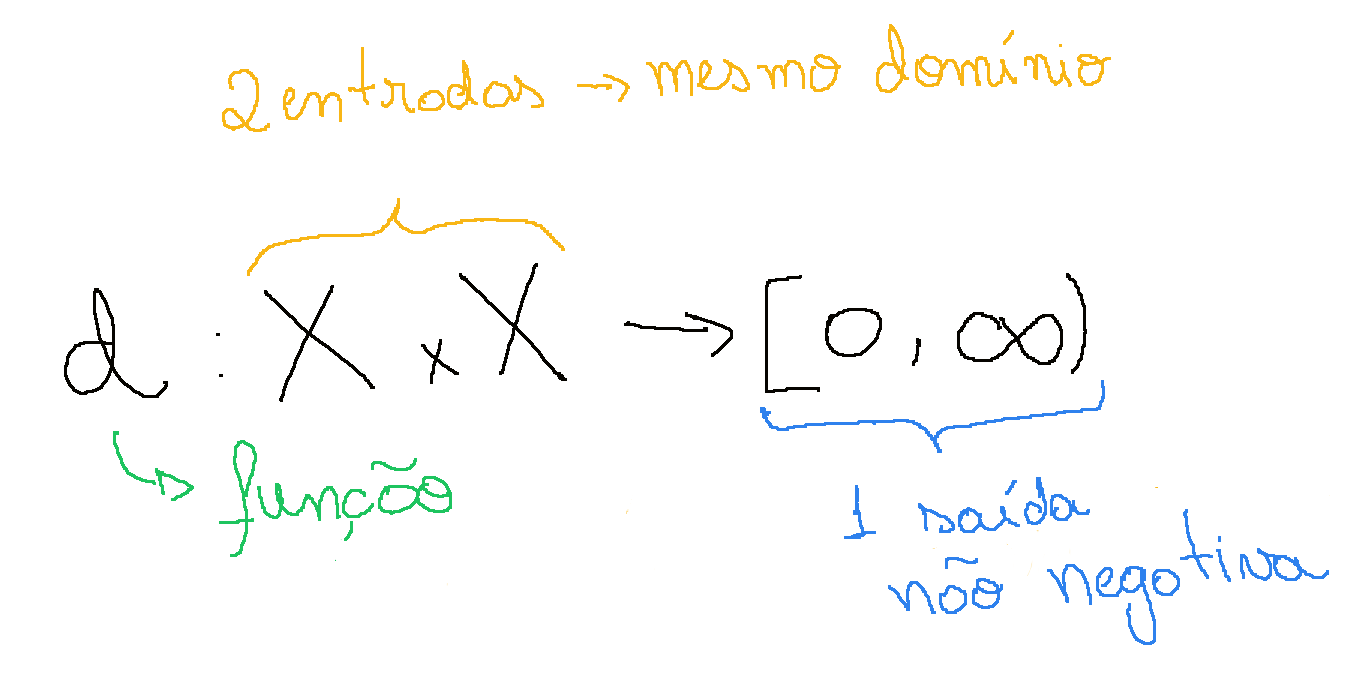 2 entradas → mesmo domínio
d : X × X → [0, ∞)
função
1 saída
não negativa